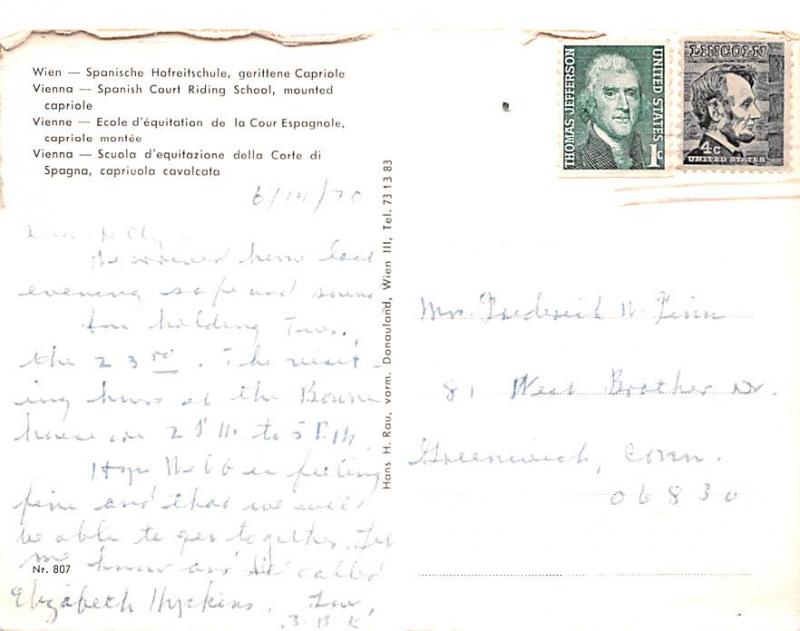 Wien — Spanische Hofreitschule, gerittene Capriole
Vienna — Spanish Court Riding School, mounted
capriole
Vienne — Ecole d'équitation de la Cour Espagnole,
capriole montée
Vienna — Scuola d'equitazione della Corte di
Spagna, capriuola cavalcata
6/14/70
Dear
We arrived home last
evening safe and sound
Am holding Tues.
the 23rd. The visit-
ing hours at the
house are 2 P.M. to 5 P.M.
Hope Webb is feeling
fine and that we will
be able to get together. Let
me know and I called
Elizabeth Hopkins. Love,
Nr. 807
Hans H. Rau, vorm. Donauland, Wien III, Tel. 73 13 83
THOMAS JEFFERSON
UNITED STATES
1c
LINCOLN
4c
UNITED STATES
Mrs. Frederick W.
81 West Brother Dr.
Greenwich, Conn.
06830